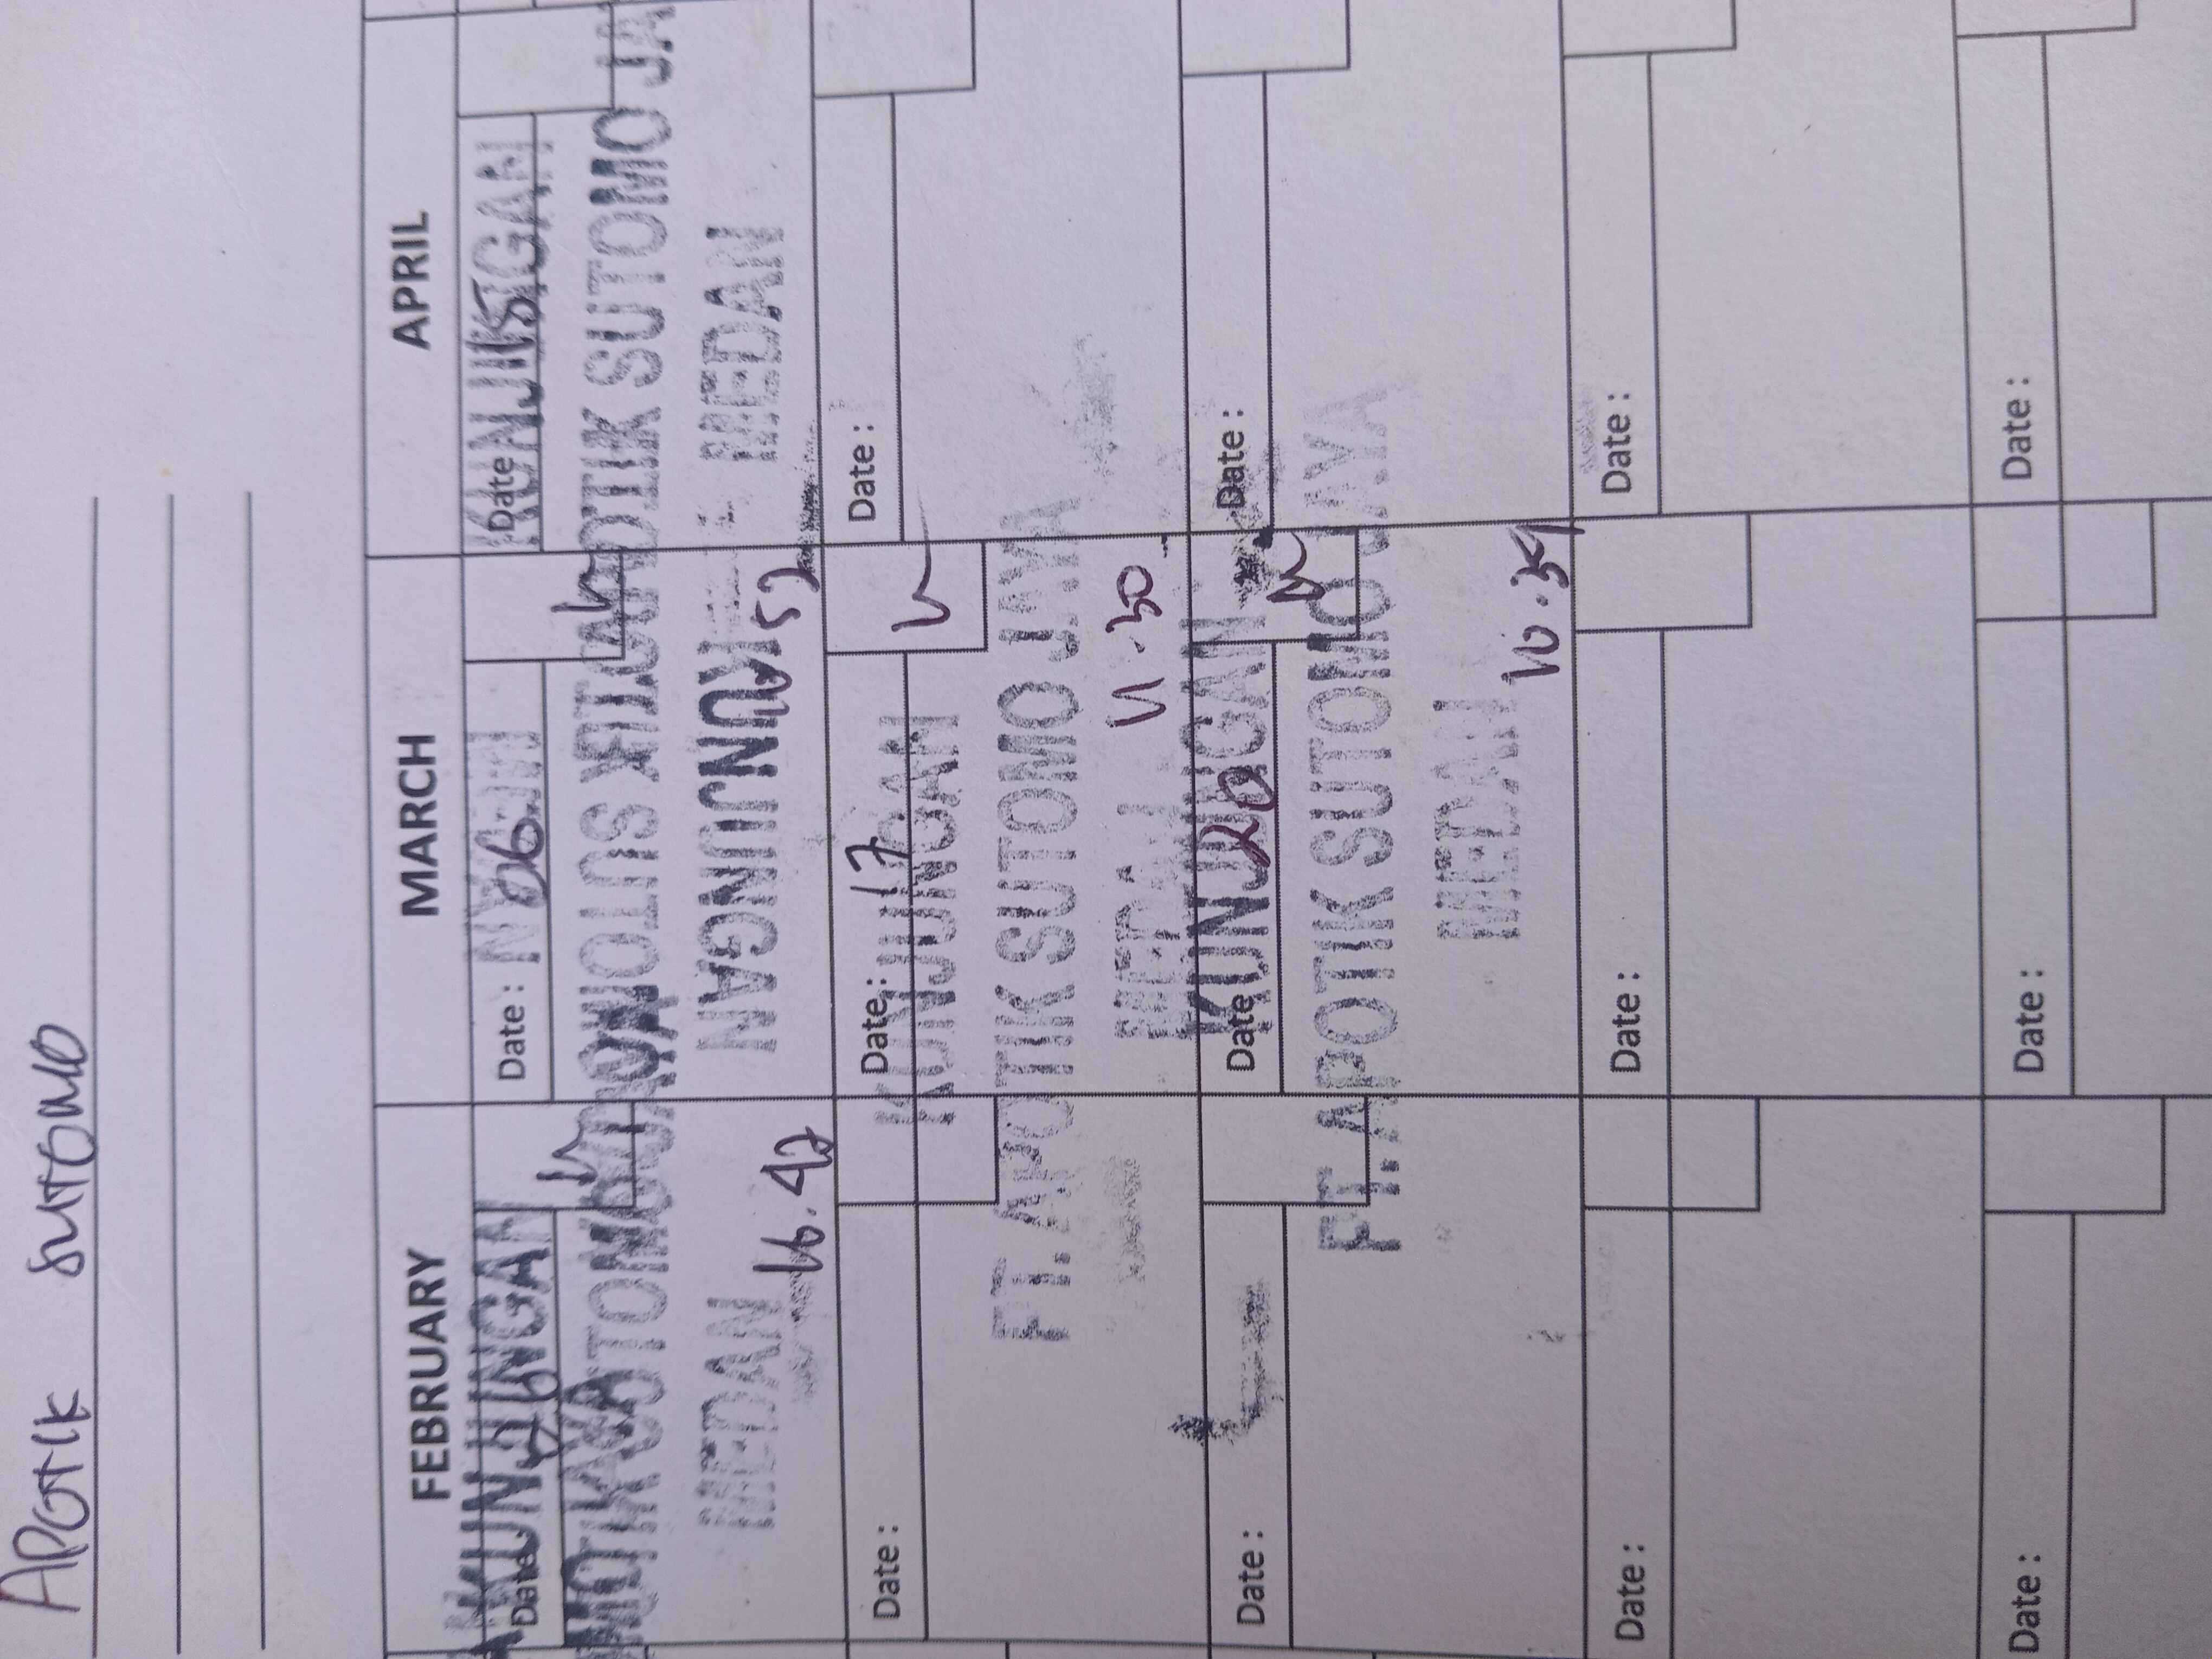 APOTIK SUTOMO
FEBRUARY MARCH APRIL
KUNJUNGAN
Date : 06 Date : 15
KUNJUNGAN
APOTIK SUTOMO JA
MEDAN MEDAN
KUNJUNGAN
16.42 52
Date : Date : 17 Date :
KUNJUNGAN
PT. APOTIK SUTOMO JAYA
11.30
MEDAN
KUNJUNGAN
Date : Date 20 Date :
PT. APOTIK SUTOMO JAYA
MEDAN
10.34
Date : Date : Date :
Date : Date : Date :